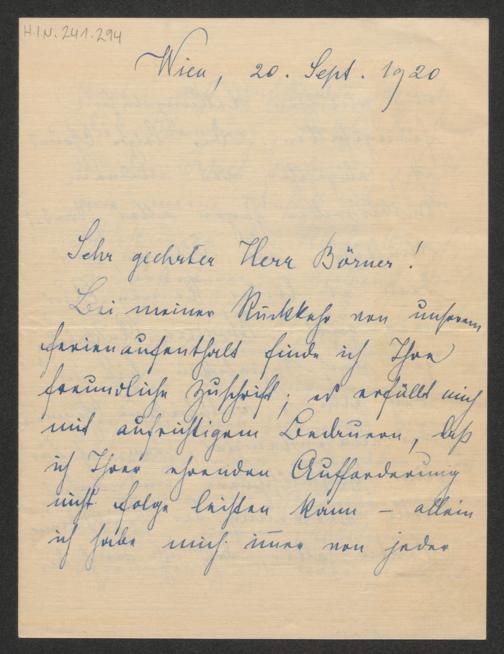 H.I.N. 241.294
Wien, 20. Sept. 1920
Sehr geehrter Herr Börner!
Bei meiner Rückkehr von unserem
Ferienaufenthalt finde ich Ihre
freundliche Zuschrift; es erfüllt mich
mit aufrichtigem Bedauern, daß
ich Ihrer ehrenden Aufforderung
nicht Folge leisten kann – allein
ich habe mich immer von jeder